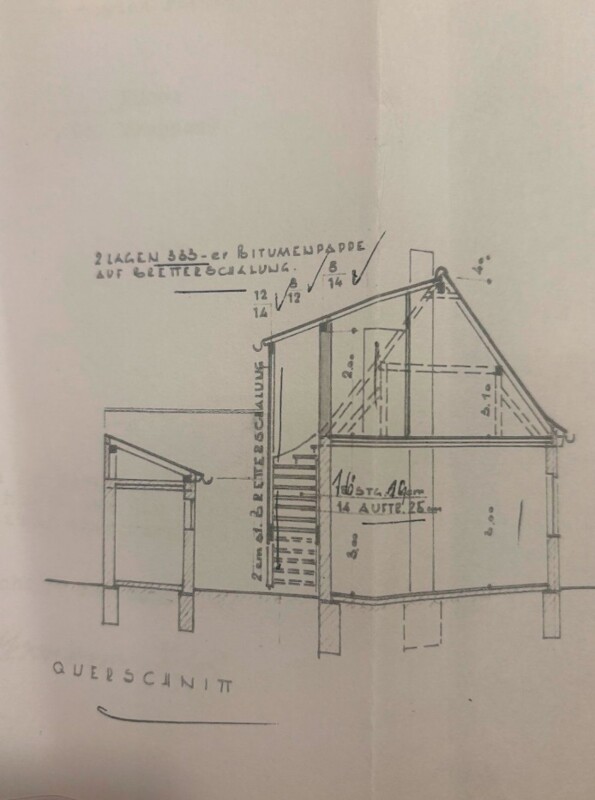 2 LAGEN 333-er BITUMENPAPPE
AUF BRETTERSCHALUNG.
12/14
8/12
8/14
2 cm st. BRETTERSCHALUNG
2.00
3.10
16 STG. 19 cm
14 AUFTR. 26 cm
3.00
3.00
QUERSCHNITT